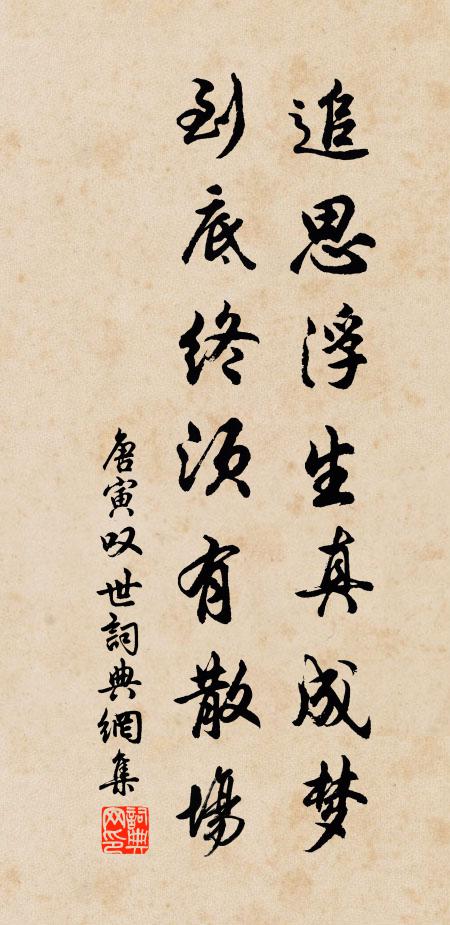 追思浮生真成梦
到底终须有散場
唐寅叹世詞典網集
詞典网印